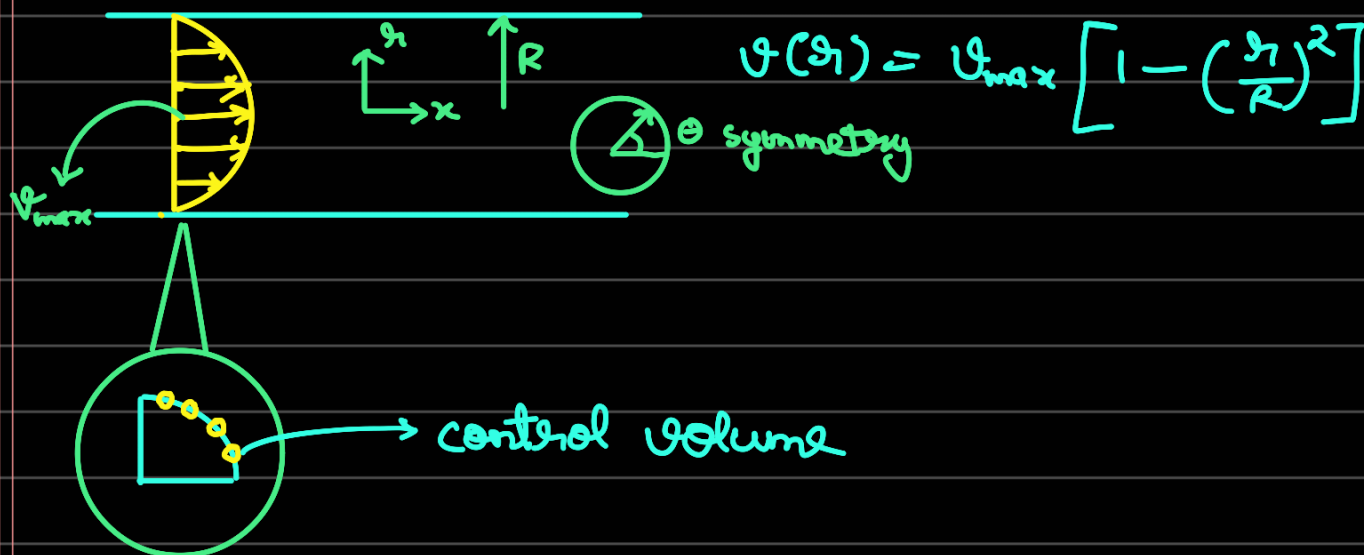 r
x
R
v(r) = v_max [1 - (r/R)^2]
θ symmetry
v_max
control volume